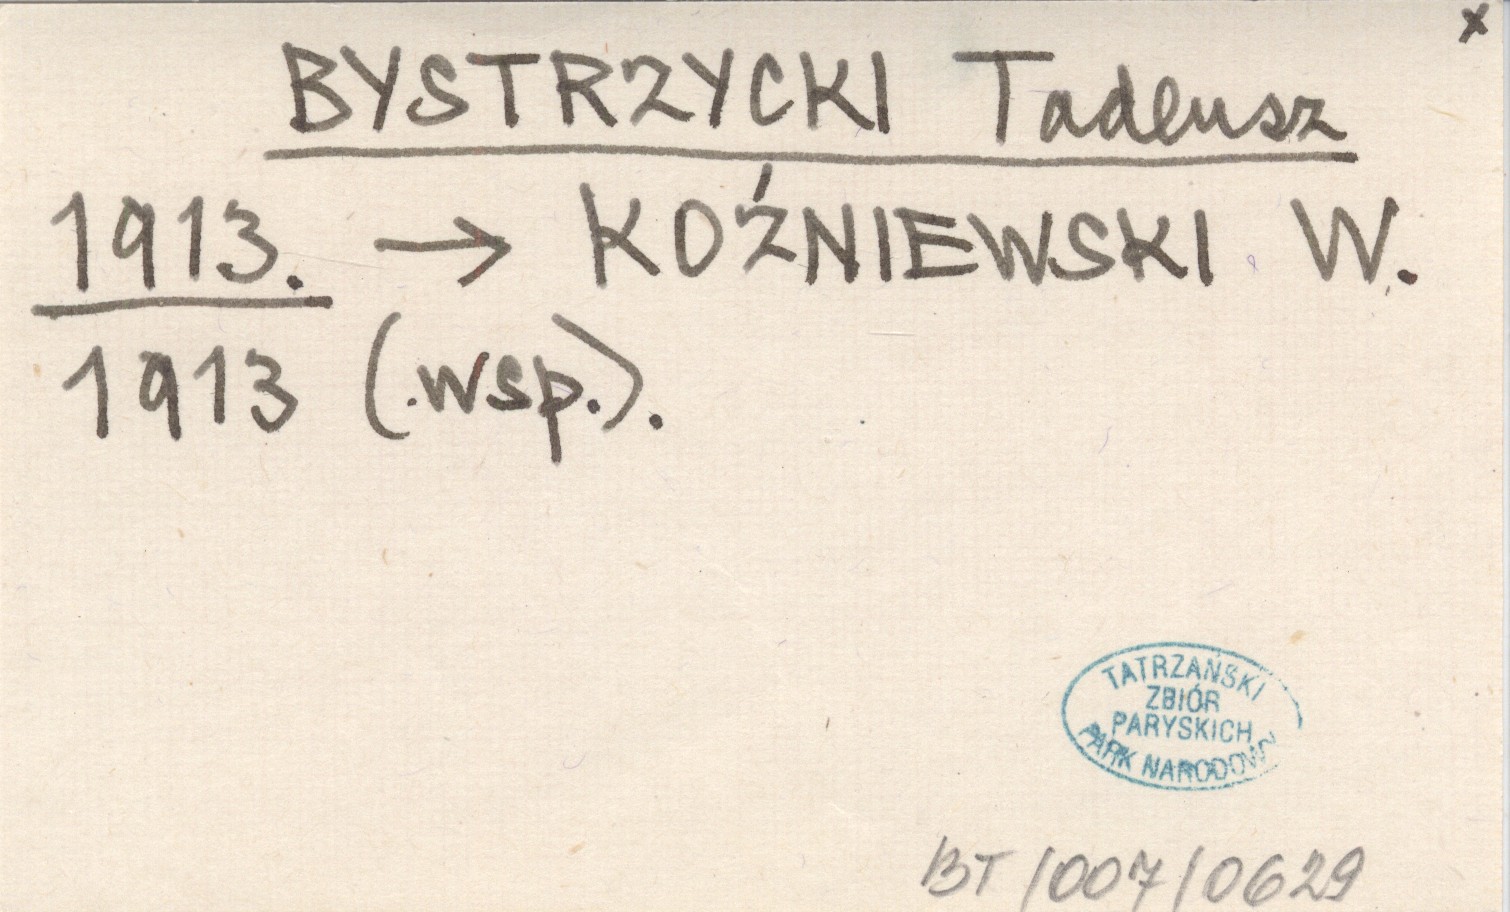 x
BYSTRZYCKI Tadeusz
1913. → KOŹNIEWSKI W.
1913 (wsp.).
TATRZAŃSKI
ZBIÓR
PARYSKICH
PARK NARODOWY
BT/007/0629